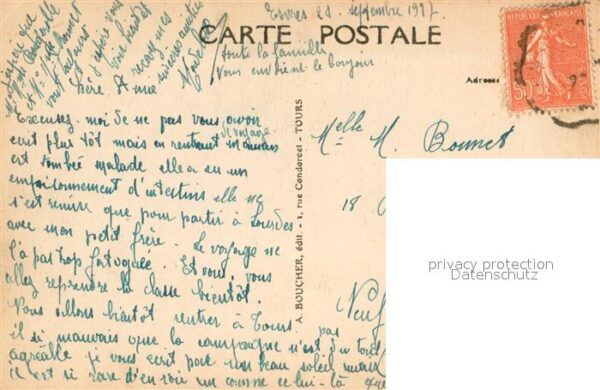 Esvres 21 septembre 1927.
CARTE POSTALE
toute la famille
Vous envoient le bonjour
Adresse
RÉPUBLIQUE FRANÇAISE
50
POSTES
J'espère que
vous
J'espère vous
voir
recevez
mes sincères amitiés
Excusez-moi de ne pas vous avoir
écrit plus tôt mais en rentrant
de voyage
maman
est tombée malade elle a eu un
empoisonnement d'intestins elle ne
s'est remise que pour partir à Lourdes
avec mon petit frère. Le voyage ne
l'a pas trop fatiguée. Et vous, vous
allez reprendre la classe bientôt.
Nous allons bientôt rentrer à Tours.
il si mauvais que la campagne n'est du tout
pas
agréable je vous écrit par un beau soleil mais
il est si rare d'en voir un comme celui-là
A. BOUCHER, édit. - 1, rue Condorcet - TOURS
Melle M. Bonnet
18
Neuf
privacy protection
Datenschutz